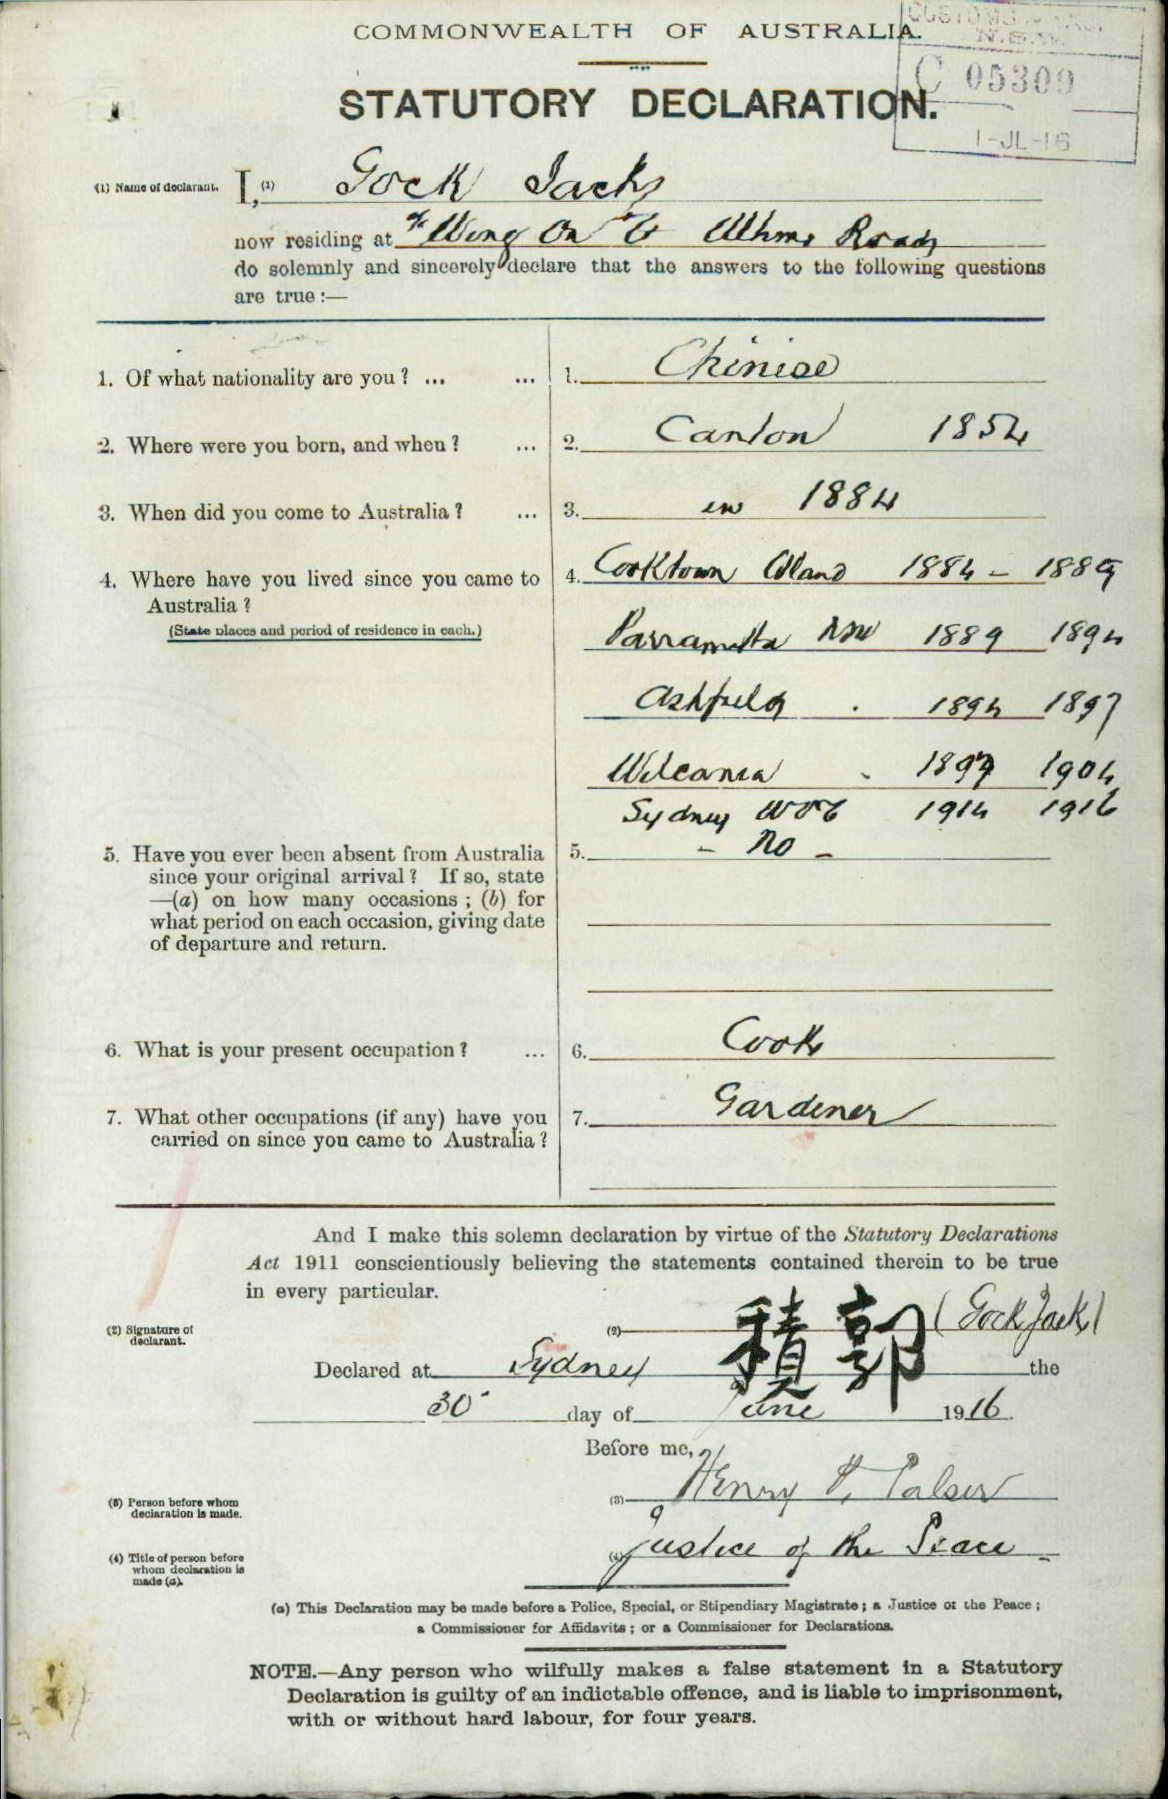 COMMONWEALTH OF AUSTRALIA.
CUSTOMS
N.S.W.
C 05309
1-JL-16
STATUTORY DECLARATION.
(1) Name of declarant. I, (1) Gock Jack
now residing at c/o Wing On & Co Road
do solemnly and sincerely declare that the answers to the following questions
are true :—
1. Of what nationality are you ? ... ... 1. Chinise
2. Where were you born, and when ? ... 2. Canton 1854
3. When did you come to Australia ? ... 3. in 1884
4. Where have you lived since you came to 4. Cooktown Qland 1884 - 1889
Australia ?
(State places and period of residence in each.)
Parramatta NSW 1889 1894
Ashfield . 1894 1897
Wilcania - 1897 1904
Sydney 1914 1916
5. Have you ever been absent from Australia 5. - No -
since your original arrival ? If so, state
—(a) on how many occasions ; (b) for
what period on each occasion, giving date
of departure and return.
6. What is your present occupation ? ... 6. Cook
7. What other occupations (if any) have you 7. Gardener
carried on since you came to Australia ?
And I make this solemn declaration by virtue of the Statutory Declarations
Act 1911 conscientiously believing the statements contained therein to be true
in every particular.
(2) Signature of
declarant.
(2) 積郭 (Gock Jack)
Declared at Sydney the
30 day of June 1916.
Before me,
(3) Person before whom
declaration is made.
(3) Henry Palser
(4) Title of person before
whom declaration is
made (a).
(4) Justice of the Peace -
(a) This Declaration may be made before a Police, Special, or Stipendiary Magistrate ; a Justice of the Peace ;
a Commissioner for Affidavits ; or a Commissioner for Declarations.
NOTE.—Any person who wilfully makes a false statement in a Statutory
Declaration is guilty of an indictable offence, and is liable to imprisonment,
with or without hard labour, for four years.